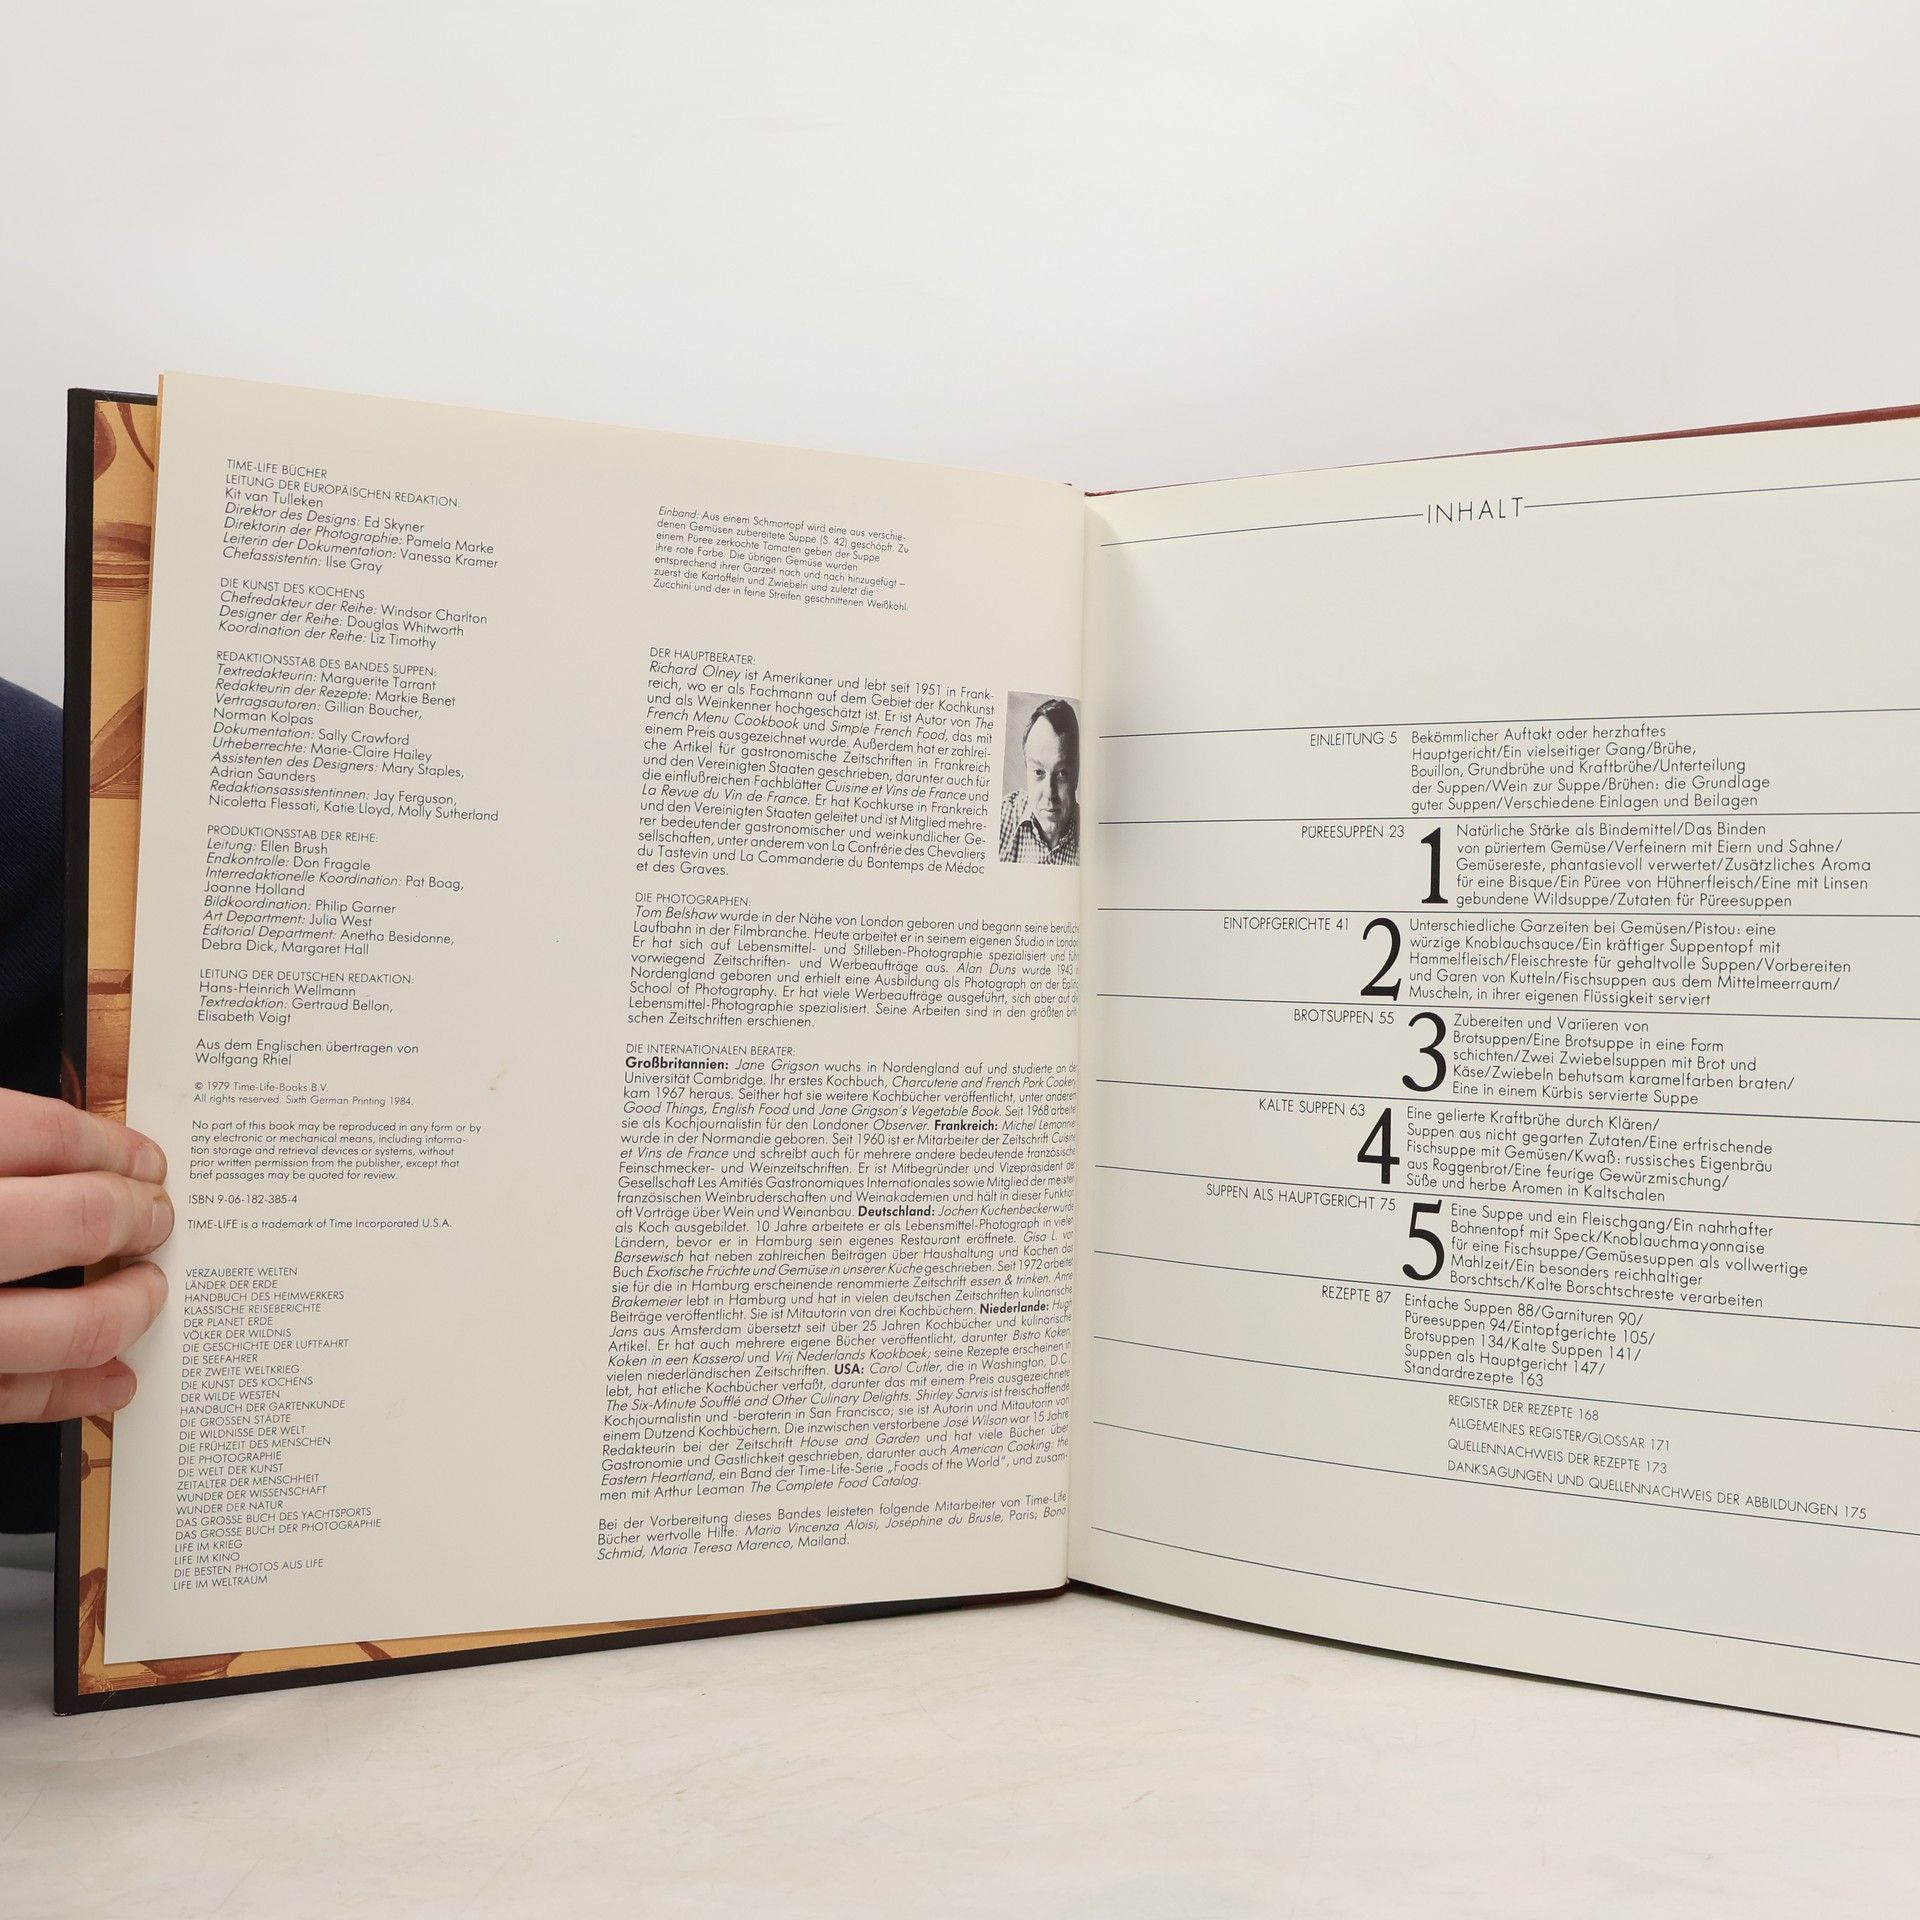 TIME-LIFE BÜCHER
LEITUNG DER EUROPÄISCHEN REDAKTION:
Kit van Tulleken
Direktor des Designs: Ed Skyner
Direktorin der Photographie: Pamela Marke
Leiterin der Dokumentation: Vanessa Kramer
Chefassistentin: Ilse Gray
DIE KUNST DES KOCHENS
Chefredakteur der Reihe: Windsor Charlton
Designer der Reihe: Douglas Whitworth
Koordination der Reihe: Liz Timothy
REDAKTIONSSTAB DES BANDES SUPPEN:
Textredakteurin: Marguerite Tarrant
Redakteurin der Rezepte: Markie Benet
Vertragsautoren: Gillian Boucher,
Norman Kolpas
Dokumentation: Sally Crawford
Urheberrechte: Marie-Claire Hailey
Assistenten des Designers: Mary Staples,
Adrian Saunders
Redaktionsassistentinnen: Jay Ferguson,
Nicoletta Flessati, Katie Lloyd, Molly Sutherland
PRODUKTIONSSTAB DER REIHE:
Leitung: Ellen Brush
Endkontrolle: Don Fragale
Interredaktionelle Koordination: Pat Boag,
Joanne Holland
Bildkoordination: Philip Garner
Art Department: Julia West
Editorial Department: Anetha Besidonne,
Debra Dick, Margaret Hall
LEITUNG DER DEUTSCHEN REDAKTION:
Hans-Heinrich Wellmann
Textredaktion: Gertraud Bellon,
Elisabeth Voigt
Aus dem Englischen übertragen von
Wolfgang Rhiel
© 1979 Time-Life-Books B.V.
All rights reserved. Sixth German Printing 1984.
No part of this book may be reproduced in any form or by
any electronic or mechanical means, including informa-
tion storage and retrieval devices or systems, without
prior written permission from the publisher, except that
brief passages may be quoted for review.
ISBN 9-06-182-385-4
TIME-LIFE is a trademark of Time Incorporated U.S.A.
VERZAUBERTE WELTEN
LÄNDER DER ERDE
HANDBUCH DES HEIMWERKERS
KLASSISCHE REISEBERICHTE
DER PLANET ERDE
VÖLKER DER WILDNIS
DIE GESCHICHTE DER LUFTFAHRT
DIE SEEFAHRER
DER ZWEITE WELTKRIEG
DIE KUNST DES KOCHENS
DER WILDE WESTEN
HANDBUCH DER GARTENKUNDE
DIE GROSSEN STÄDTE
DIE WILDNISSE DER WELT
DIE FRÜHZEIT DES MENSCHEN
DIE PHOTOGRAPHIE
DIE WELT DER KUNST
ZEITALTER DER MENSCHHEIT
WUNDER DER WISSENSCHAFT
WUNDER DER NATUR
DAS GROSSE BUCH DES YACHTSPORTS
DAS GROSSE BUCH DER PHOTOGRAPHIE
LIFE IM KRIEG
LIFE IM KINO
DIE BESTEN PHOTOS AUS LIFE
LIFE IM WELTRAUM
Einband: Aus einem Schmortopf wird eine aus verschie-
denen Gemüsen zubereitete Suppe (S. 42) geschöpft. Zu
einem Püree zerkochte Tomaten geben der Suppe
ihre rote Farbe. Die übrigen Gemüse wurden
entsprechend ihrer Garzeit nach und nach hinzugefügt –
zuerst die Kartoffeln und Zwiebeln und zuletzt die
Zucchini und der in feine Streifen geschnittenen Weißkohl.
DER HAUPTBERATER:
Richard Olney ist Amerikaner und lebt seit 1951 in Frank-
reich, wo er als Fachmann auf dem Gebiet der Kochkunst
und als Weinkenner hochgeschätzt ist. Er ist Autor von The
French Menu Cookbook und Simple French Food, das mit
einem Preis ausgezeichnet wurde. Außerdem hat er zahlrei-
che Artikel für gastronomische Zeitschriften in Frankreich
und den Vereinigten Staaten geschrieben, darunter auch für
die einflußreichen Fachblätter Cuisine et Vins de France und
La Revue du Vin de France. Er hat Kochkurse in Frankreich
und den Vereinigten Staaten geleitet und ist Mitglied mehre-
rer bedeutender gastronomischer und weinkundlicher Ge-
sellschaften, unter anderem von La Confrérie des Chevaliers
du Tastevin und La Commanderie du Bontemps de Médoc
et des Graves.
DIE PHOTOGRAPHEN:
Tom Belshaw wurde in der Nähe von London geboren und begann seine berufliche
Laufbahn in der Filmbranche. Heute arbeitet er in seinem eigenen Studio in London
Er hat sich auf Lebensmittel- und Stilleben-Photographie spezialisiert und führt
vorwiegend Zeitschriften- und Werbeaufträge aus. Alan Duns wurde 1943 in
Nordengland geboren und erhielt eine Ausbildung als Photograph an der Ealing
School of Photography. Er hat viele Werbeaufträge ausgeführt, sich aber auf die
Lebensmittel-Photographie spezialisiert. Seine Arbeiten sind in den größten briti-
schen Zeitschriften erschienen.
DIE INTERNATIONALEN BERATER:
Großbritannien: Jane Grigson wuchs in Nordengland auf und studierte an der
Universität Cambridge. Ihr erstes Kochbuch, Charcuterie and French Pork Cookery
kam 1967 heraus. Seither hat sie weitere Kochbücher veröffentlicht, unter anderem
Good Things, English Food und Jane Grigson's Vegetable Book. Seit 1968 arbeitet
sie als Kochjournalistin für den Londoner Observer. Frankreich: Michel Lemonnier
wurde in der Normandie geboren. Seit 1960 ist er Mitarbeiter der Zeitschrift Cuisine
et Vins de France und schreibt auch für mehrere andere bedeutende französische
Feinschmecker- und Weinzeitschriften. Er ist Mitbegründer und Vizepräsident der
Gesellschaft Les Amitiés Gastronomiques Internationales sowie Mitglied der meisten
französischen Weinbruderschaften und Weinakademien und hält in dieser Funktion
oft Vorträge über Wein und Weinanbau. Deutschland: Jochen Kuchenbecker wurde
als Koch ausgebildet. 10 Jahre arbeitete er als Lebensmittel-Photograph in vielen
Ländern, bevor er in Hamburg sein eigenes Restaurant eröffnete. Gisa L. von
Barsewisch hat neben zahlreichen Beiträgen über Haushaltung und Kochen das
Buch Exotische Früchte und Gemüse in unserer Küche geschrieben. Seit 1972 arbeitet
sie für die in Hamburg erscheinende renommierte Zeitschrift essen & trinken. Anne
Brakemeier lebt in Hamburg und hat in vielen deutschen Zeitschriften kulinarische
Beiträge veröffentlicht. Sie ist Mitautorin von drei Kochbüchern. Niederlande: Hugh
Jans aus Amsterdam übersetzt seit über 25 Jahren Kochbücher und kulinarische
Artikel. Er hat auch mehrere eigene Bücher veröffentlicht, darunter Bistro Koken,
Koken in een Kasserol und Vrij Nederlands Kookboek; seine Rezepte erscheinen in
vielen niederländischen Zeitschriften. USA: Carol Cutler, die in Washington, D.C.,
lebt, hat etliche Kochbücher verfaßt, darunter das mit einem Preis ausgezeichnete
The Six-Minute Soufflé and Other Culinary Delights. Shirley Sarvis ist freischaffende
Kochjournalistin und -beraterin in San Francisco; sie ist Autorin und Mitautorin von
einem Dutzend Kochbüchern. Die inzwischen verstorbene José Wilson war 15 Jahre
Redakteurin bei der Zeitschrift House and Garden und hat viele Bücher über
Gastronomie und Gastlichkeit geschrieben, darunter auch American Cooking: the
Eastern Heartland, ein Band der Time-Life-Serie „Foods of the World“, und zusam-
men mit Arthur Leaman The Complete Food Catalog.
Bei der Vorbereitung dieses Bandes leisteten folgende Mitarbeiter von Time-Life
Bücher wertvolle Hilfe: Maria Vincenza Aloisi, Joséphine du Brusle, Paris; Bona
Schmid, Maria Teresa Marenco, Mailand.
INHALT
EINLEITUNG 5 Bekömmlicher Auftakt oder herzhaftes
Hauptgericht/Ein vielseitiger Gang/Brühe,
Bouillon, Grundbrühe und Kraftbrühe/Unterteilung
der Suppen/Wein zur Suppe/Brühen: die Grundlage
guter Suppen/Verschiedene Einlagen und Beilagen
PÜREESUPPEN 23 1 Natürliche Stärke als Bindemittel/Das Binden
von püriertem Gemüse/Verfeinern mit Eiern und Sahne/
Gemüsereste, phantasievoll verwertet/Zusätzliches Aroma
für eine Bisque/Ein Püree von Hühnerfleisch/Eine mit Linsen
gebundene Wildsuppe/Zutaten für Püreesuppen
EINTOPFGERICHTE 41 2 Unterschiedliche Garzeiten bei Gemüsen/Pistou: eine
würzige Knoblauchsauce/Ein kräftiger Suppentopf mit
Hammelfleisch/Fleischreste für gehaltvolle Suppen/Vorbereiten
und Garen von Kutteln/Fischsuppen aus dem Mittelmeerraum/
Muscheln, in ihrer eigenen Flüssigkeit serviert
BROTSUPPEN 55 3 Zubereiten und Variieren von
Brotsuppen/Eine Brotsuppe in eine Form
schichten/Zwei Zwiebelsuppen mit Brot und
Käse/Zwiebeln behutsam karamelfarben braten/
Eine in einem Kürbis servierte Suppe
KALTE SUPPEN 63 4 Eine gelierte Kraftbrühe durch Klären/
Suppen aus nicht gegarten Zutaten/Eine erfrischende
Fischsuppe mit Gemüsen/Kwaß: russisches Eigenbräu
aus Roggenbrot/Eine feurige Gewürzmischung/
Süße und herbe Aromen in Kaltschalen
SUPPEN ALS HAUPTGERICHT 75 5 Eine Suppe und ein Fleischgang/Ein nahrhafter
Bohnentopf mit Speck/Knoblauchmayonnaise
für eine Fischsuppe/Gemüsesuppen als vollwertige
Mahlzeit/Ein besonders reichhaltiger
Borschtsch/Kalte Borschtschreste verarbeiten
REZEPTE 87 Einfache Suppen 88/Garnituren 90/
Püreesuppen 94/Eintopfgerichte 105/
Brotsuppen 134/Kalte Suppen 141/
Suppen als Hauptgericht 147/
Standardrezepte 163
REGISTER DER REZEPTE 168
ALLGEMEINES REGISTER/GLOSSAR 171
QUELLENNACHWEIS DER REZEPTE 173
DANKSAGUNGEN UND QUELLENNACHWEIS DER ABBILDUNGEN 175